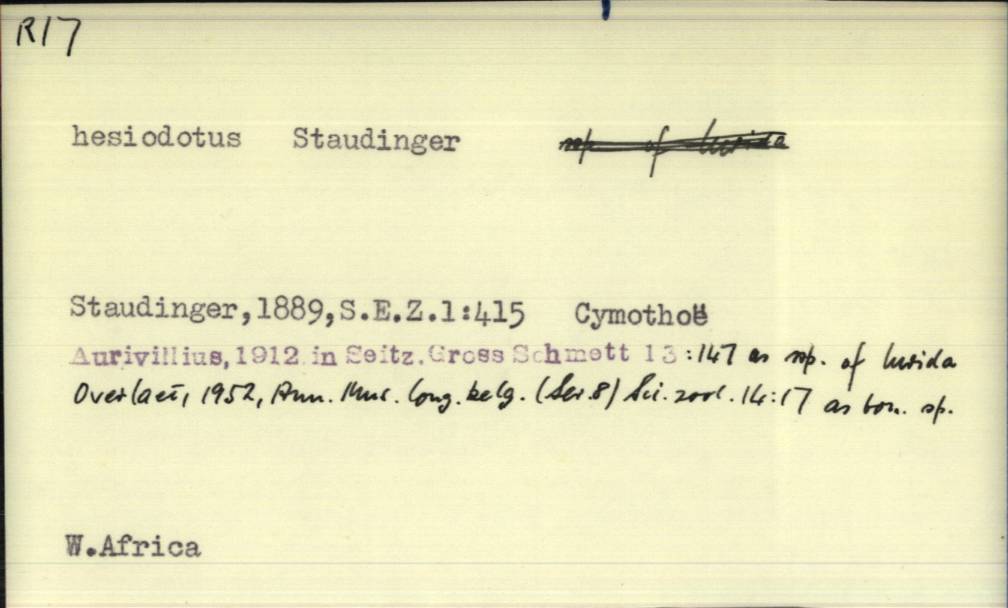 R17
hesiodotus Staudinger ssp. of lurida
Staudinger,1889,S.E.Z.1:415 Cymothoë
Aurivillius,1912 in Seitz.Gross Schmett 13:147 as ssp. of lurida
Overlaet, 1952, Ann. Mus. Cong. belg. (Ser. 8) Sci. zool. 14:17 as bon. sp.
W.Africa